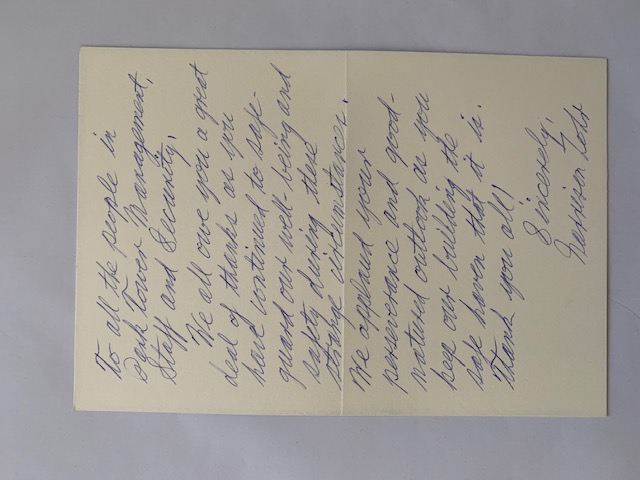 To all the people in
Park Tower Management,
Staff and Security,
We all owe you a great
deal of thanks as you
have continued to safe-
guard our well-being and
safety during these
strange circumstances.
We applaud your
perseverance and good-
natured outlook as you
keep our building the
safe haven that it is.
Thank you all!
Sincerely,